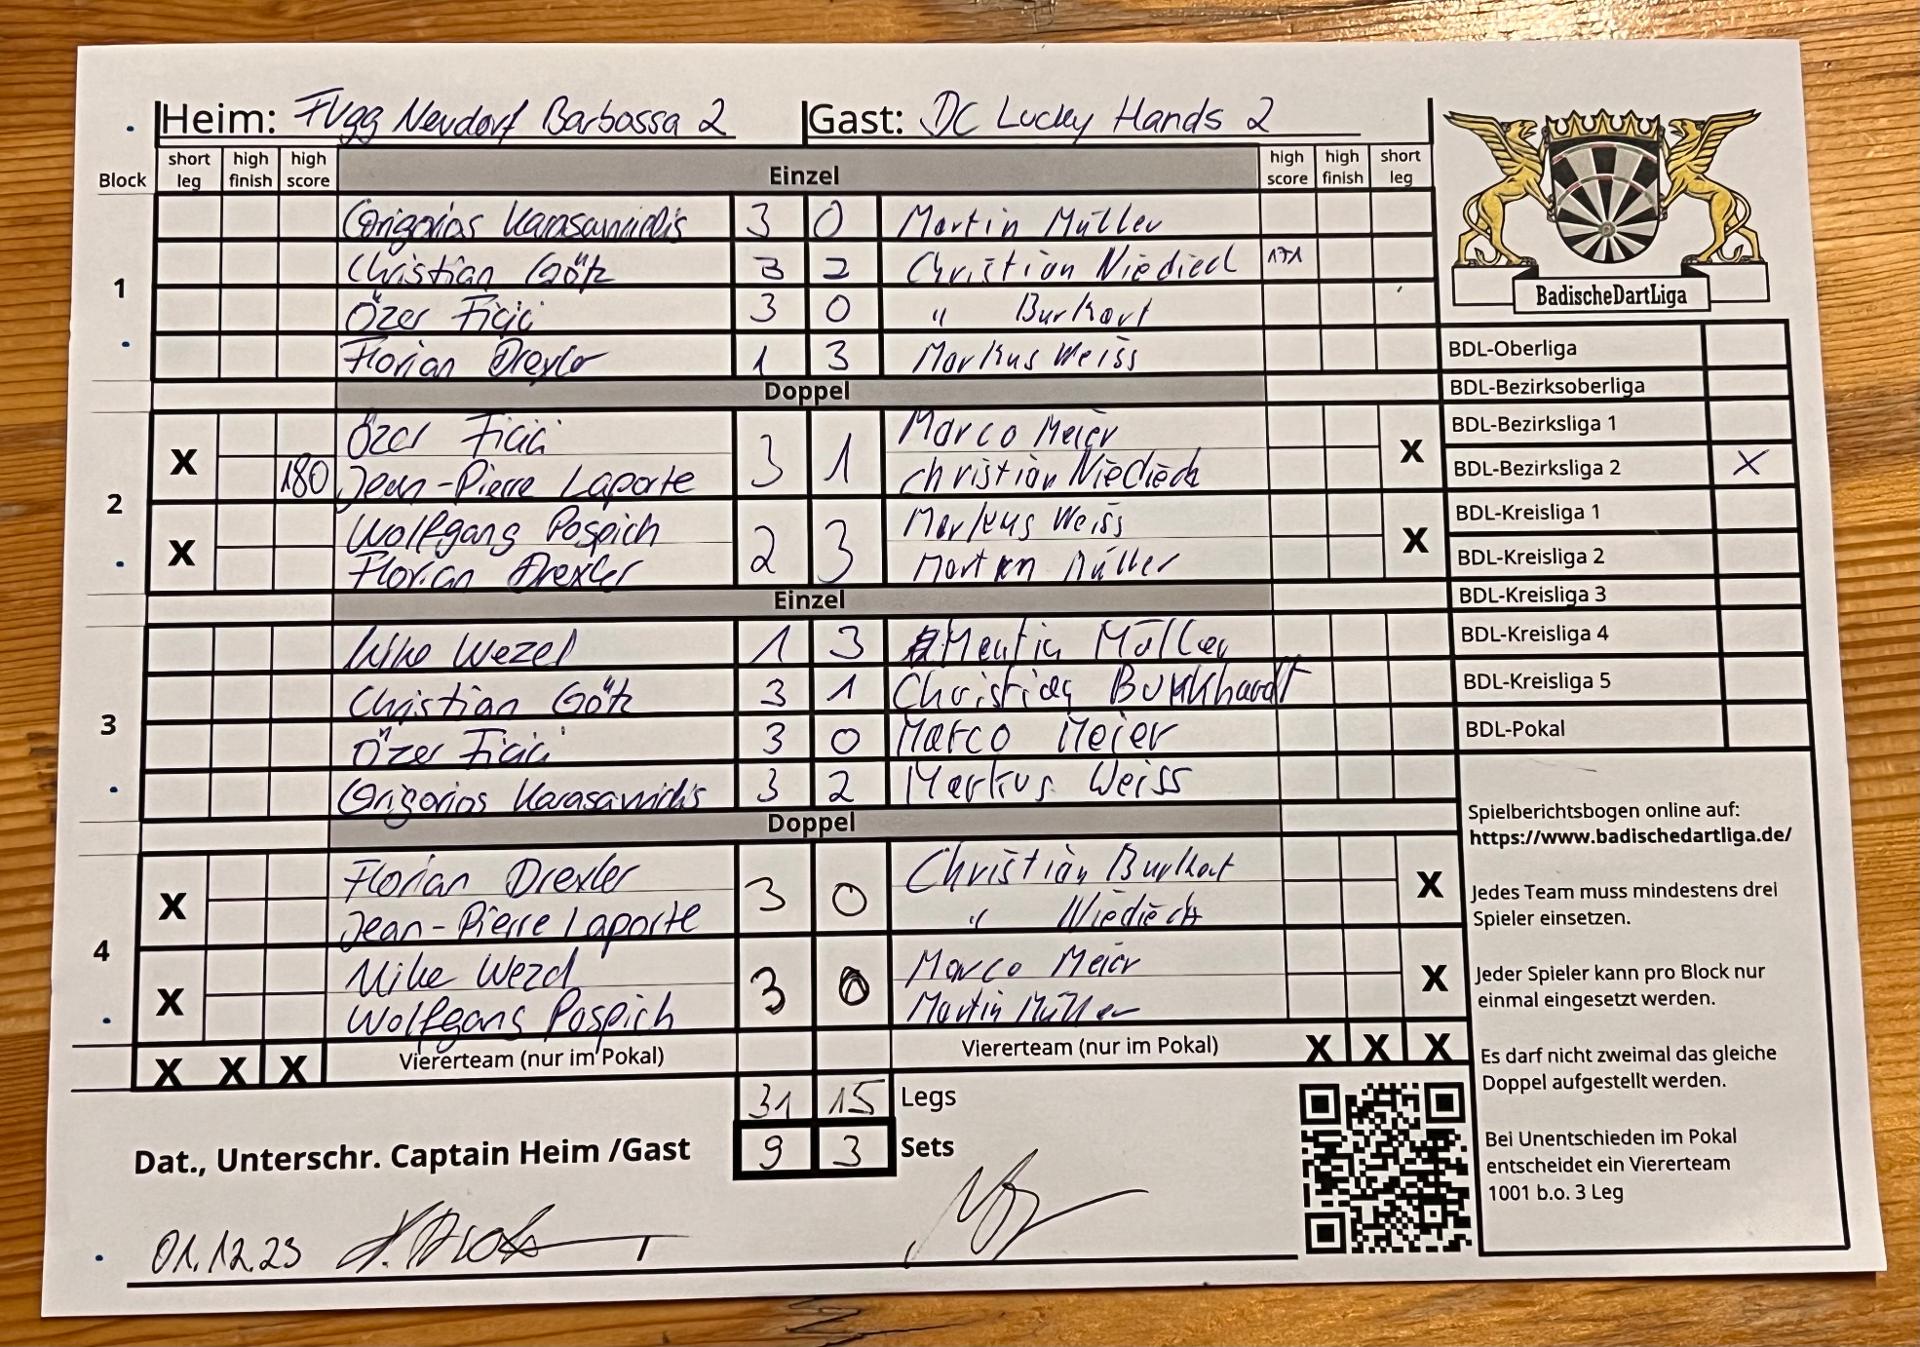 Heim: FVgg Neudorf Barbossa 2 Gast: DC Lucky Hands 2
Block short leg high finish high score Einzel high score high finish short leg
1
Grigorios Karasavvidis 3 0 Martin Müller
Christian Götz 3 2 Christian Niedieck 171
Özer Ficici 3 0 " Burkart
Florian Drexler 1 3 Markus Weiss
Doppel
2
X Özer Ficici 3 1 Marco Meier X
180 Jean-Pierre Laporte Christian Niedieck
X Wolfgang Pospich 2 3 Markus Weiss X
Florian Drexler Martin Müller
Einzel
3
Mike Wezel 1 3 Martin Müller
Christian Götz 3 1 Christian Burkhardt
Özer Ficici 3 0 Marco Meier
Grigorios Karasavvidis 3 2 Markus Weiss
Doppel
4
X Florian Drexler 3 0 Christian Burkat X
Jean-Pierre Laporte " Niedieck
X Mike Wezel 3 0 Marco Meier X
Wolfgang Pospich Martin Müller
X X X Viererteam (nur im Pokal) Viererteam (nur im Pokal) X X X
31 15 Legs
Dat., Unterschr. Captain Heim /Gast 9 3 Sets
01.12.23
BadischeDartLiga
BDL-Oberliga
BDL-Bezirksoberliga
BDL-Bezirksliga 1
BDL-Bezirksliga 2 X
BDL-Kreisliga 1
BDL-Kreisliga 2
BDL-Kreisliga 3
BDL-Kreisliga 4
BDL-Kreisliga 5
BDL-Pokal
Spielberichtsbogen online auf:
https://www.badischedartliga.de/
Jedes Team muss mindestens drei
Spieler einsetzen.
Jeder Spieler kann pro Block nur
einmal eingesetzt werden.
Es darf nicht zweimal das gleiche
Doppel aufgestellt werden.
Bei Unentschieden im Pokal
entscheidet ein Viererteam
1001 b.o. 3 Leg